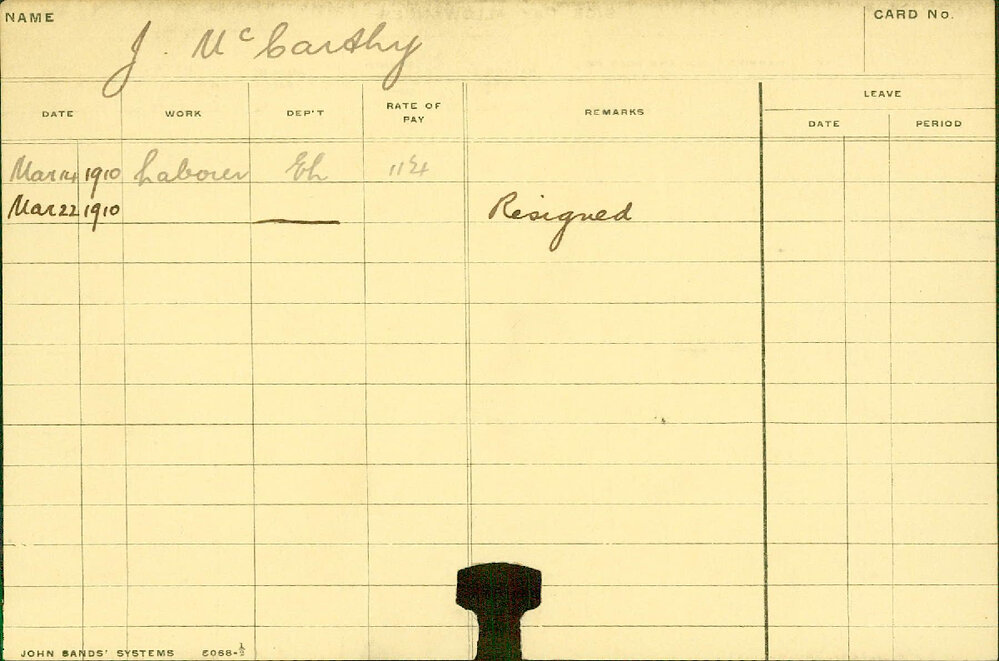 NAME
J. McCarthy
CARD No.
DATE WORK DEP'T RATE OF PAY REMARKS LEAVE
DATE PERIOD
Mar 14 1910 Laborer Eh
Mar 22 1910 Resigned
JOHN SANDS' SYSTEMS 5068-½